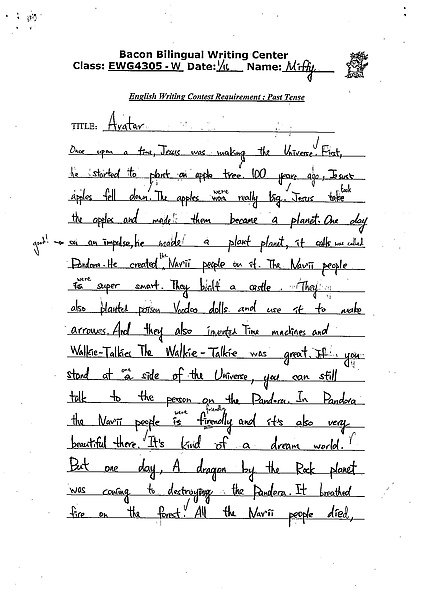 Bacon Bilingual Writing Center
Class: EWG4305 - W Date: 1/16 Name: Miffy
English Writing Contest Requirement : Past Tense
TITLE: Avatar
Once upon a time, Jesus was making the Universe. First,
he started to plant an apple tree. 100 years ago, Jesus
were took
apples fell down. The apples was really big. Jesus take
the apples and made them became a planet. One day
good! on an impulse, he made a plant planet, it calls was called
the
Pandora. He created Navii people on it. The Navii people
were
is super smart. They built a castle. They
also planted poison Voodoo dolls and use it to make
arrows. And they also invented Time machines and
Walkie-Talkies The Walkie-Talkie was great. If you
one
stand at a side of the Universe, you can still
talk to the person on the Pandora. In Pandora
were friendly
the Navii people is firendly and it's also very
beautiful there. It's kind of a dream world.
But one day, A dragon by the Rock planet
was coming to destroying the Pandora. It breathed
fire on the forest. All the Navii people died,